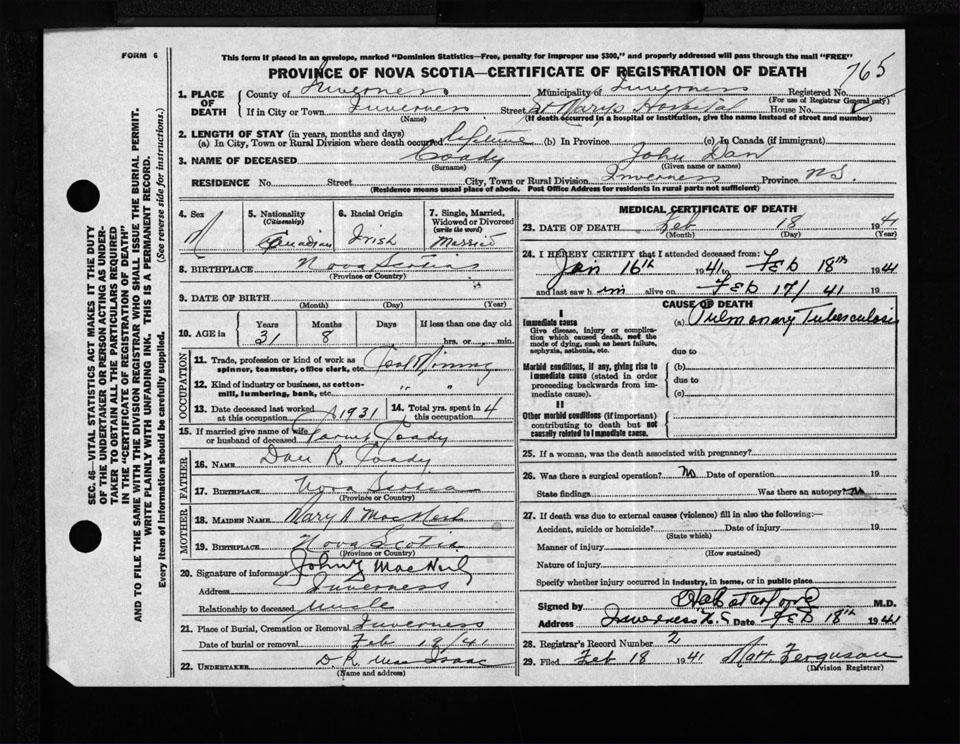 FORM 6
This form if placed in an envelope, marked "Dominion Statistics—Free, penalty for improper use $300," and properly addressed will pass through the mail "FREE"
PROVINCE OF NOVA SCOTIA—CERTIFICATE OF REGISTRATION OF DEATH
765
1. PLACE OF DEATH
County of Inverness Municipality of Inverness Registered No.
(For use of Registrar General only)
If in City or Town Inverness Street St Marys Hospital House No.
(Name) (If death occurred in a hospital or institution, give the name instead of street and number)
2. LENGTH OF STAY (in years, months and days)
(a) In City, Town or Rural Division where death occurred lifetime (b) In Province (c) In Canada (if immigrant)
3. NAME OF DECEASED Coady John Dan
(Surname) (Given name or names)
RESIDENCE No. Street City, Town or Rural Division Inverness Province N.S.
(Residence means usual place of abode. Post Office Address for residents in rural parts not sufficient)
4. Sex M
5. Nationality (Citizenship) Canadian
6. Racial Origin Irish
7. Single, Married, Widowed or Divorced (write the word) Married
8. BIRTHPLACE Nova Scotia
(Province or Country)
9. DATE OF BIRTH
(Month) (Day) (Year)
10. AGE in Years Months Days If less than one day old
31 8 hrs. or min.
OCCUPATION
11. Trade, profession or kind of work as spinner, teamster, office clerk, etc. Coal Mining
12. Kind of industry or business, as cotton-mill, lumbering, bank, etc. " "
13. Date deceased last worked at this occupation 1931
14. Total yrs. spent in this occupation 4
15. If married give name of wife or husband of deceased Coady
FATHER
16. NAME Dan R Coady
17. BIRTHPLACE Nova Scotia
(Province or Country)
MOTHER
18. MAIDEN NAME Mary A MacNeil
19. BIRTHPLACE Nova Scotia
(Province or Country)
20. Signature of informant John MacNeil
Address Inverness
Relationship to deceased Uncle
21. Place of Burial, Cremation or Removal Inverness
Date of burial or removal Feb /41
22. UNDERTAKER D. R. MacIsaac
(Name and address)
MEDICAL CERTIFICATE OF DEATH
23. DATE OF DEATH Feb 18 1941
(Month) (Day) (Year)
24. I HEREBY CERTIFY that I attended deceased from:
Jan 16th 1941 to Feb 18th 1941
and last saw him alive on Feb 17/41 19
CAUSE OF DEATH
I
Immediate cause (a) Pulmonary Tuberculosis
Give disease, injury or complication which caused death, not the mode of dying, such as heart failure, asphyxia, asthenia, etc.
due to
Morbid conditions, if any, giving rise to immediate cause (stated in order proceeding backwards from immediate cause).
(b)
due to
(c)
II
Other morbid conditions (if important) contributing to death but not causally related to immediate cause.
25. If a woman, was the death associated with pregnancy?
26. Was there a surgical operation? No Date of operation 19
State findings Was there an autopsy? No
27. If death was due to external causes (violence) fill in also the following:—
Accident, suicide or homicide? Date of injury 19
(State which)
Manner of injury
(How sustained)
Nature of injury
Specify whether injury occurred in industry, in home, or in public place
Signed by M.D.
Address Inverness N.S Date Feb 18th 1941
28. Registrar's Record Number 2
29. Filed Feb 18 1941 Matt. Ferguson
(Division Registrar)
SEC. 46—VITAL STATISTICS ACT MAKES IT THE DUTY
OF THE UNDERTAKER OR PERSON ACTING AS UNDER-
TAKER TO OBTAIN ALL THE PARTICULARS REQUIRED
IN THE "CERTIFICATE OF REGISTRATION OF DEATH"
AND TO FILE THE SAME WITH THE DIVISION REGISTRAR WHO SHALL ISSUE THE BURIAL PERMIT.
WRITE PLAINLY WITH UNFADING INK. THIS IS A PERMANENT RECORD.
Every item of information should be carefully supplied. (See reverse side for instructions.)